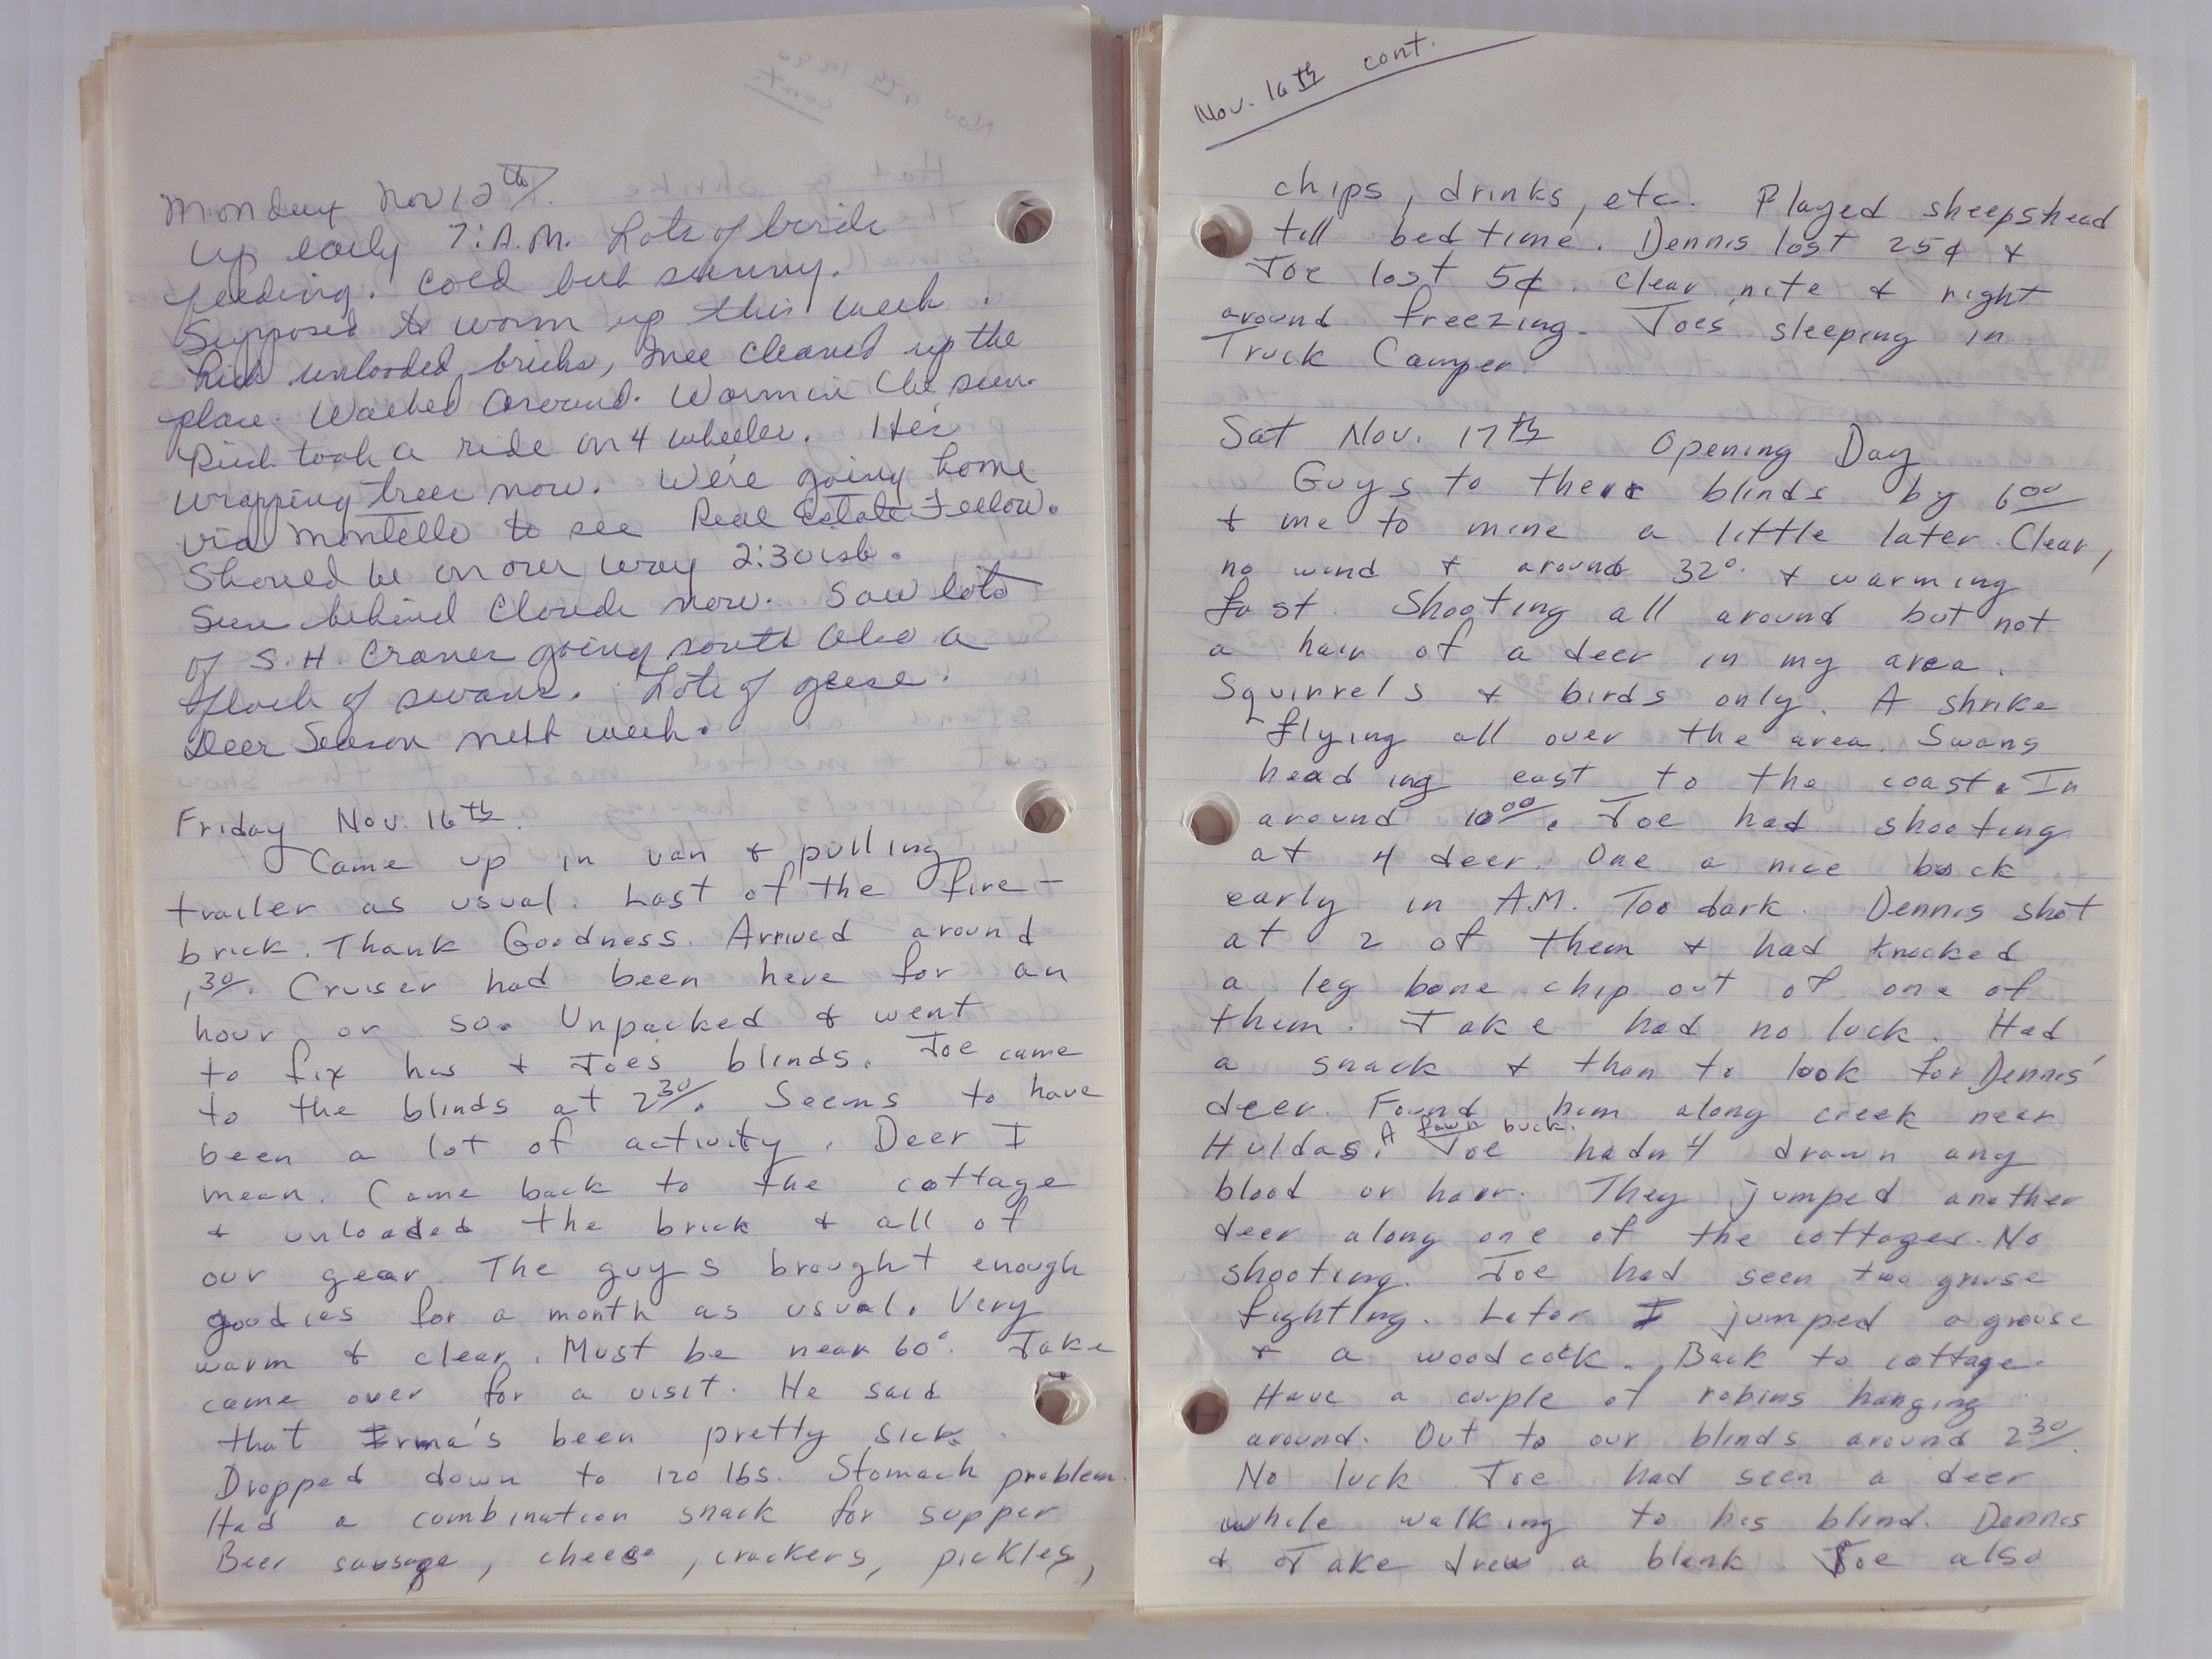 Monday Nov 12th.
Up early 7:A.M. Lots of birds
feeding. Cold but sunny.
Supposed to warm up this week.
Rich unloaded bricks, Mee cleaned up the
place. Walked around. Warm in the sun.
Rich took a ride on 4 wheeler. He's
wrapping trees now. We're going home
via Montello to see Real Estate Fellow.
Should be on our way 2:30ish.
Sun behind clouds now. Saw lots
of S.H. Cranes going south also a
flock of swans. Lots of geese.
Deer Season next week.
Friday Nov. 16th.
Came up in van & pulling
trailer as usual. Last of the fire-
brick. Thank Goodness. Arrived around
130. Cruiser had been here for an
hour or so. Unpacked & went
to fix his & Joes blinds. Joe came
to the blinds at 230. Seems to have
been a lot of activity. Deer I
mean. Came back to the cottage
& unloaded the brick & all of
our gear. The guys brought enough
goodies for a month as usual. Very
warm & clear. Must be near 60°. Jake
came over for a visit. He said
that Irma's been pretty sick.
Dropped down to 120 lbs. Stomach problem.
Had a combination snack for supper
Beer sausage, cheese, crackers, pickles,
Nov. 16th cont.
chips, drinks, etc. Played sheepshead
till bedtime. Dennis lost 25¢ &
Joe lost 5¢. Clear nite & right
around freezing. Joes sleeping in
Truck Camper.
Sat Nov. 17th Opening Day
Guys to there blinds by 600
& me to mine a little later. Clear,
no wind & around 32°. & warming
fast. Shooting all around but not
a hair of a deer in my area.
Squirrels & birds only. A shrike
flying all over the area. Swans
heading east to the coast. In
around 1000. Joe had shooting
at 4 deer. One a nice buck
early in A.M. Too dark. Dennis shot
at 2 of them & had knocked
a leg bone chip out of one of
them. Jake had no luck. Had
a snack & than to look for Dennis'
deer. Found him along creek near
Huldas. A fawn buck. Joe hadn't drawn any
blood or hair. They jumped another
deer along one of the cottages. No
shooting. Joe had seen two grouse
fighting. Later I jumped a grouse
& a woodcock. Back to cottage.
Have a couple of robins hanging
around. Out to our blinds around 230.
No luck Joe had seen a deer
while walking to his blind. Dennis
& Jake drew a blank. Joe also